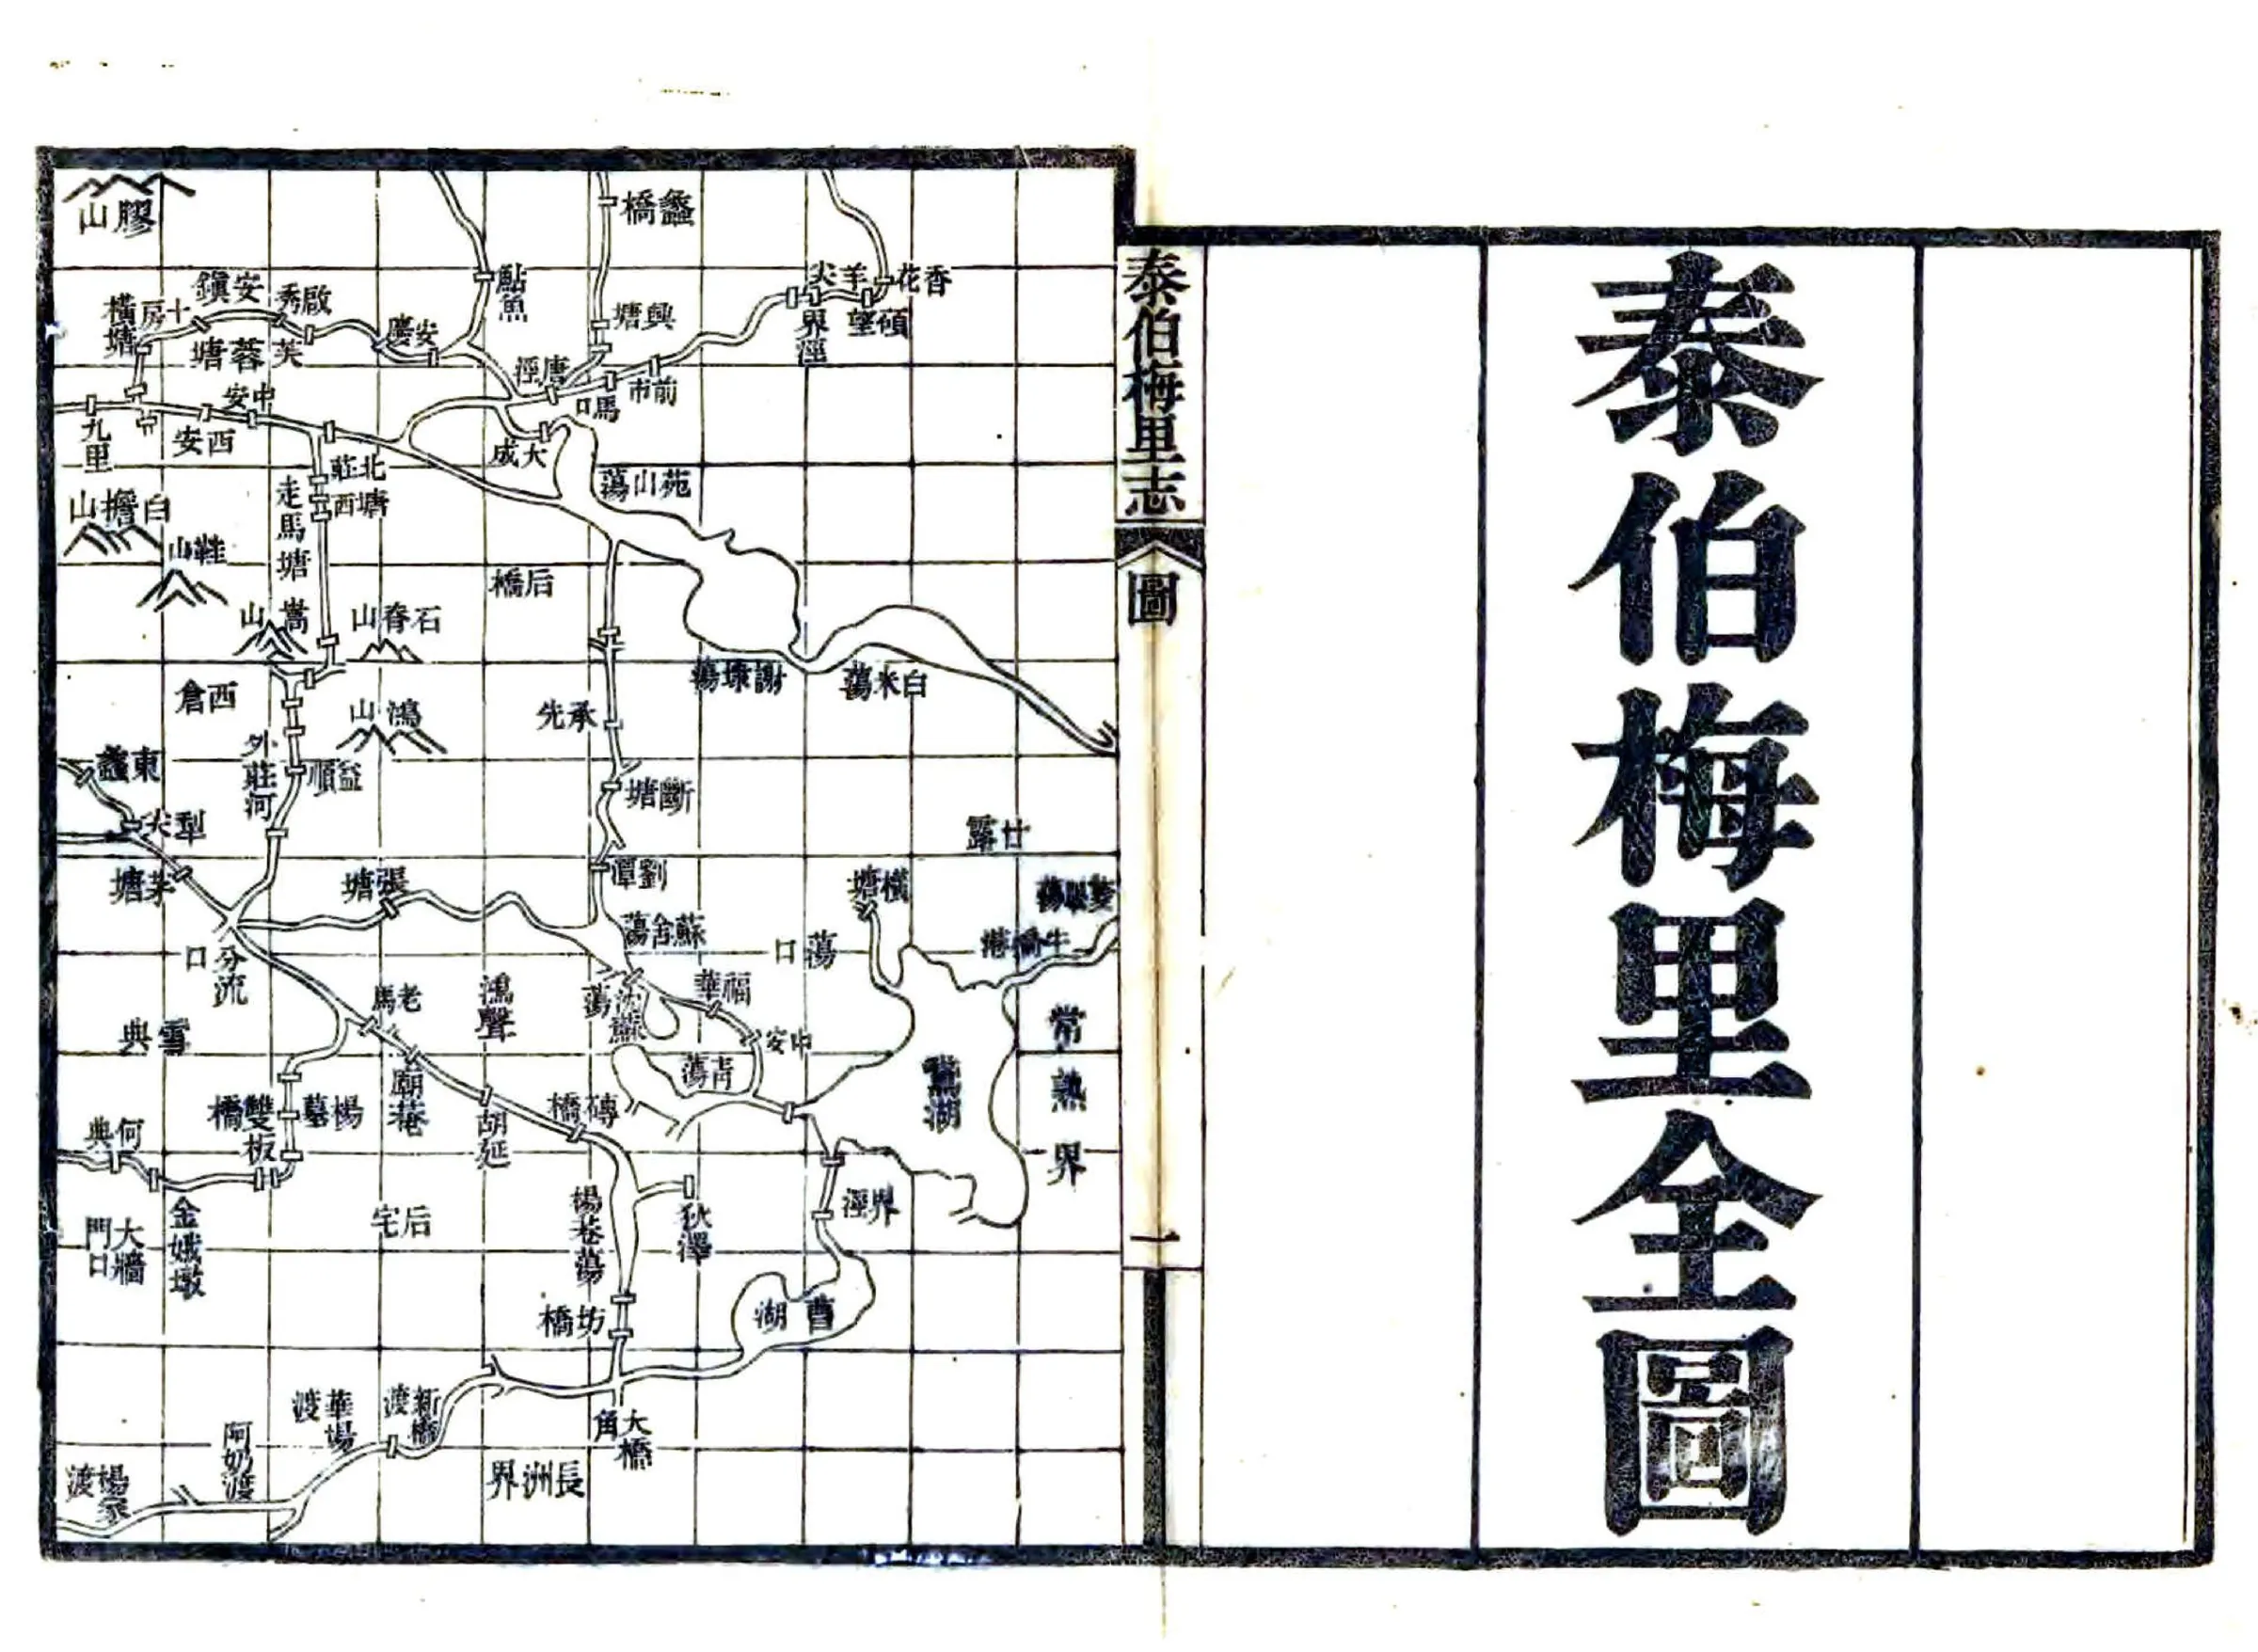 泰伯梅里全圖
泰伯梅里志
圖
一
膠山
蠡橋
鮎魚
香花
羊尖
碩望
界涇
興塘
安鎮
啟秀
十房
橫塘
芙蓉塘
安慶
唐涇
馬口
前市
中安
西安
九里
大成
北莊
塘西
走馬塘
苑山蕩
白擔山
鞋山
嵩山
石脊山
后橋
謝埭蕩
白米蕩
西倉
鴻山
承先
外莊河
益順
東蠡
犁尖
茅塘
斷塘
劉潭
甘露
橫塘
張塘
蘇舍蕩
蕩口
常熟界
分流口
老馬
鴻聲
福華
中安
青蕩
鵞湖
雪典
何典
雙板橋
楊墓
廟菴
胡延
磚橋
狄澤
界涇
楊巷蕩
大牆門口
金娥墩
后宅
坊橋
曹湖
大橋角
新橋渡
華場渡
阿奶渡
楊家渡
長洲界